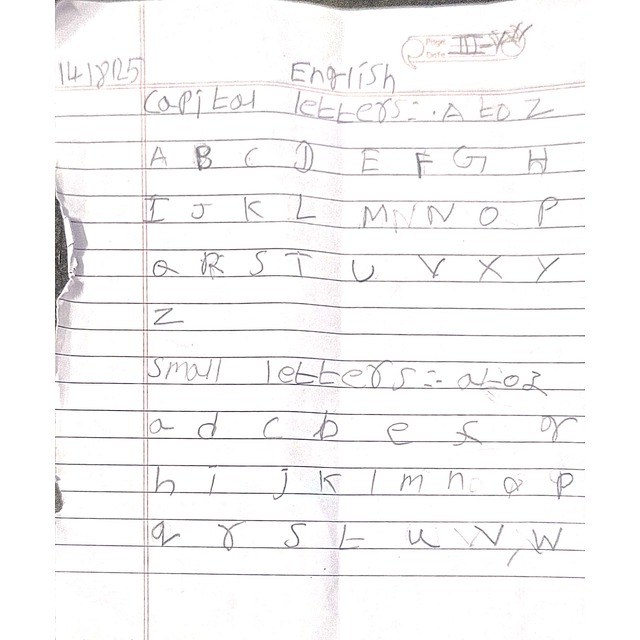 Page III-V
Date
14/8/25
English
Capital letters:- A to Z
A B C D E F G H
I J K L M N N O P
Q R S T U V X Y
Z
Small letters:- a to z
a d c b e f g
h i j k l m n o p
q r s t u v, w